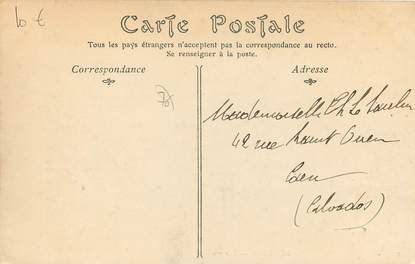 10 €
Carte Postale
Tous les pays étrangers n'acceptent pas la correspondance au recto.
Se renseigner à la poste.
Correspondance
Adresse
Mademoiselle Ch. Le
42 rue Saint Ouen
Caen
(Calvados)